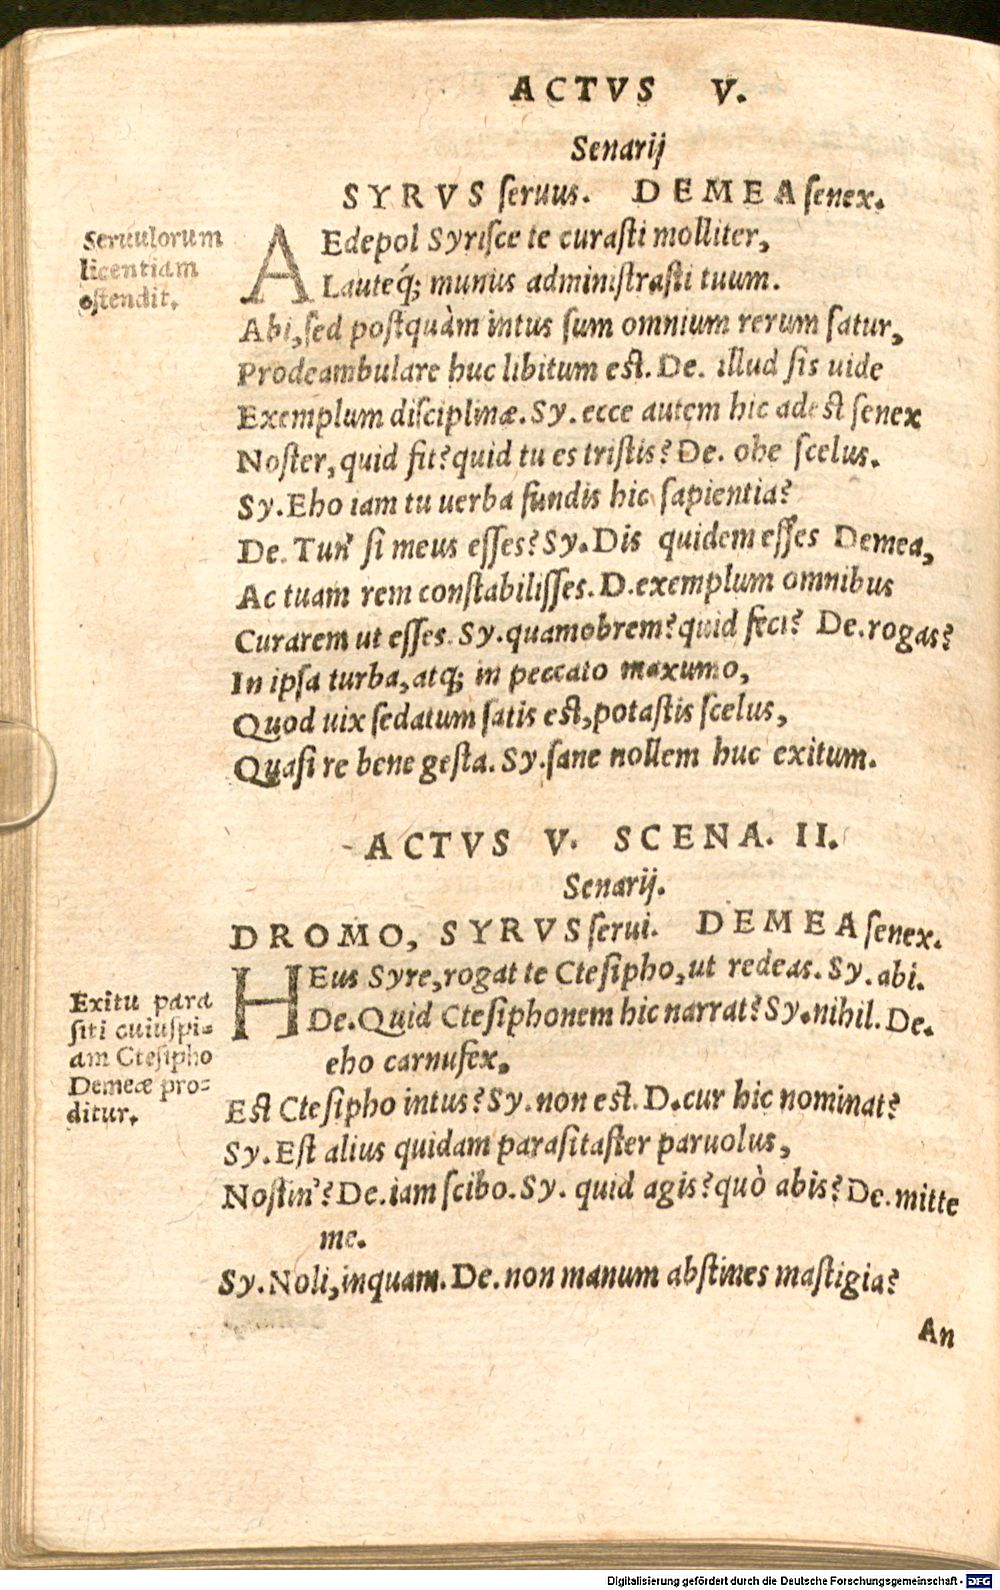 ACTVS V.
Senarij
SYRVS ſeruus. DEMEA ſenex.
Seruulorum
licentiam
oſtendit.
AEdepol Syriſce te curaſti molliter,
Lauteq́; munus adminiſtraſti tuum.
Abi, ſed poſtquàm intus ſum omnium rerum ſatur,
Prodeambulare huc libitum eſt. De. illud ſis uide
Exemplum diſciplinæ. Sy. ecce autem hic adeſt ſenex
Noſter, quid fit? quid tu es triſtis? De. ohe ſcelus.
Sy. Eho iam tu uerba fundis hic ſapientia?
De. Tun' ſi meus eſſes? Sy. Dis quidem eſſes Demea,
Ac tuam rem conſtabiliſſes. D. exemplum omnibus
Curarem ut eſſes. Sy. quamobrem? quid feci? De. rogas?
In ipſa turba, atq; in peccato maxumo,
Quod uix ſedatum ſatis eſt, potaſtis ſcelus,
Quaſi re bene geſta. Sy. ſane nollem huc exitum.
ACTVS V. SCENA. II.
Senarij.
DROMO, SYRVS ſerui. DEMEA ſenex.
Exitu para
ſiti cuiuſpi=
am Cteſipho
Demeæ pro=
ditur.
HEus Syre, rogat te Cteſipho, ut redeas. Sy. abi.
De. Quid Cteſiphonem hic narrat? Sy. nihil. De.
eho carnufex,
Eſt Cteſipho intus? Sy. non eſt. D. cur hic nominat?
Sy. Eſt alius quidam paraſitaſter paruolus,
Noſtin'? De. iam ſcibo. Sy. quid agis? quò abis? De. mitte
me.
Sy. Noli, inquam. De. non manum abſtines maſtigia?
An
Digitalisierung gefördert durch die Deutsche Forschungsgemeinschaft - DFG